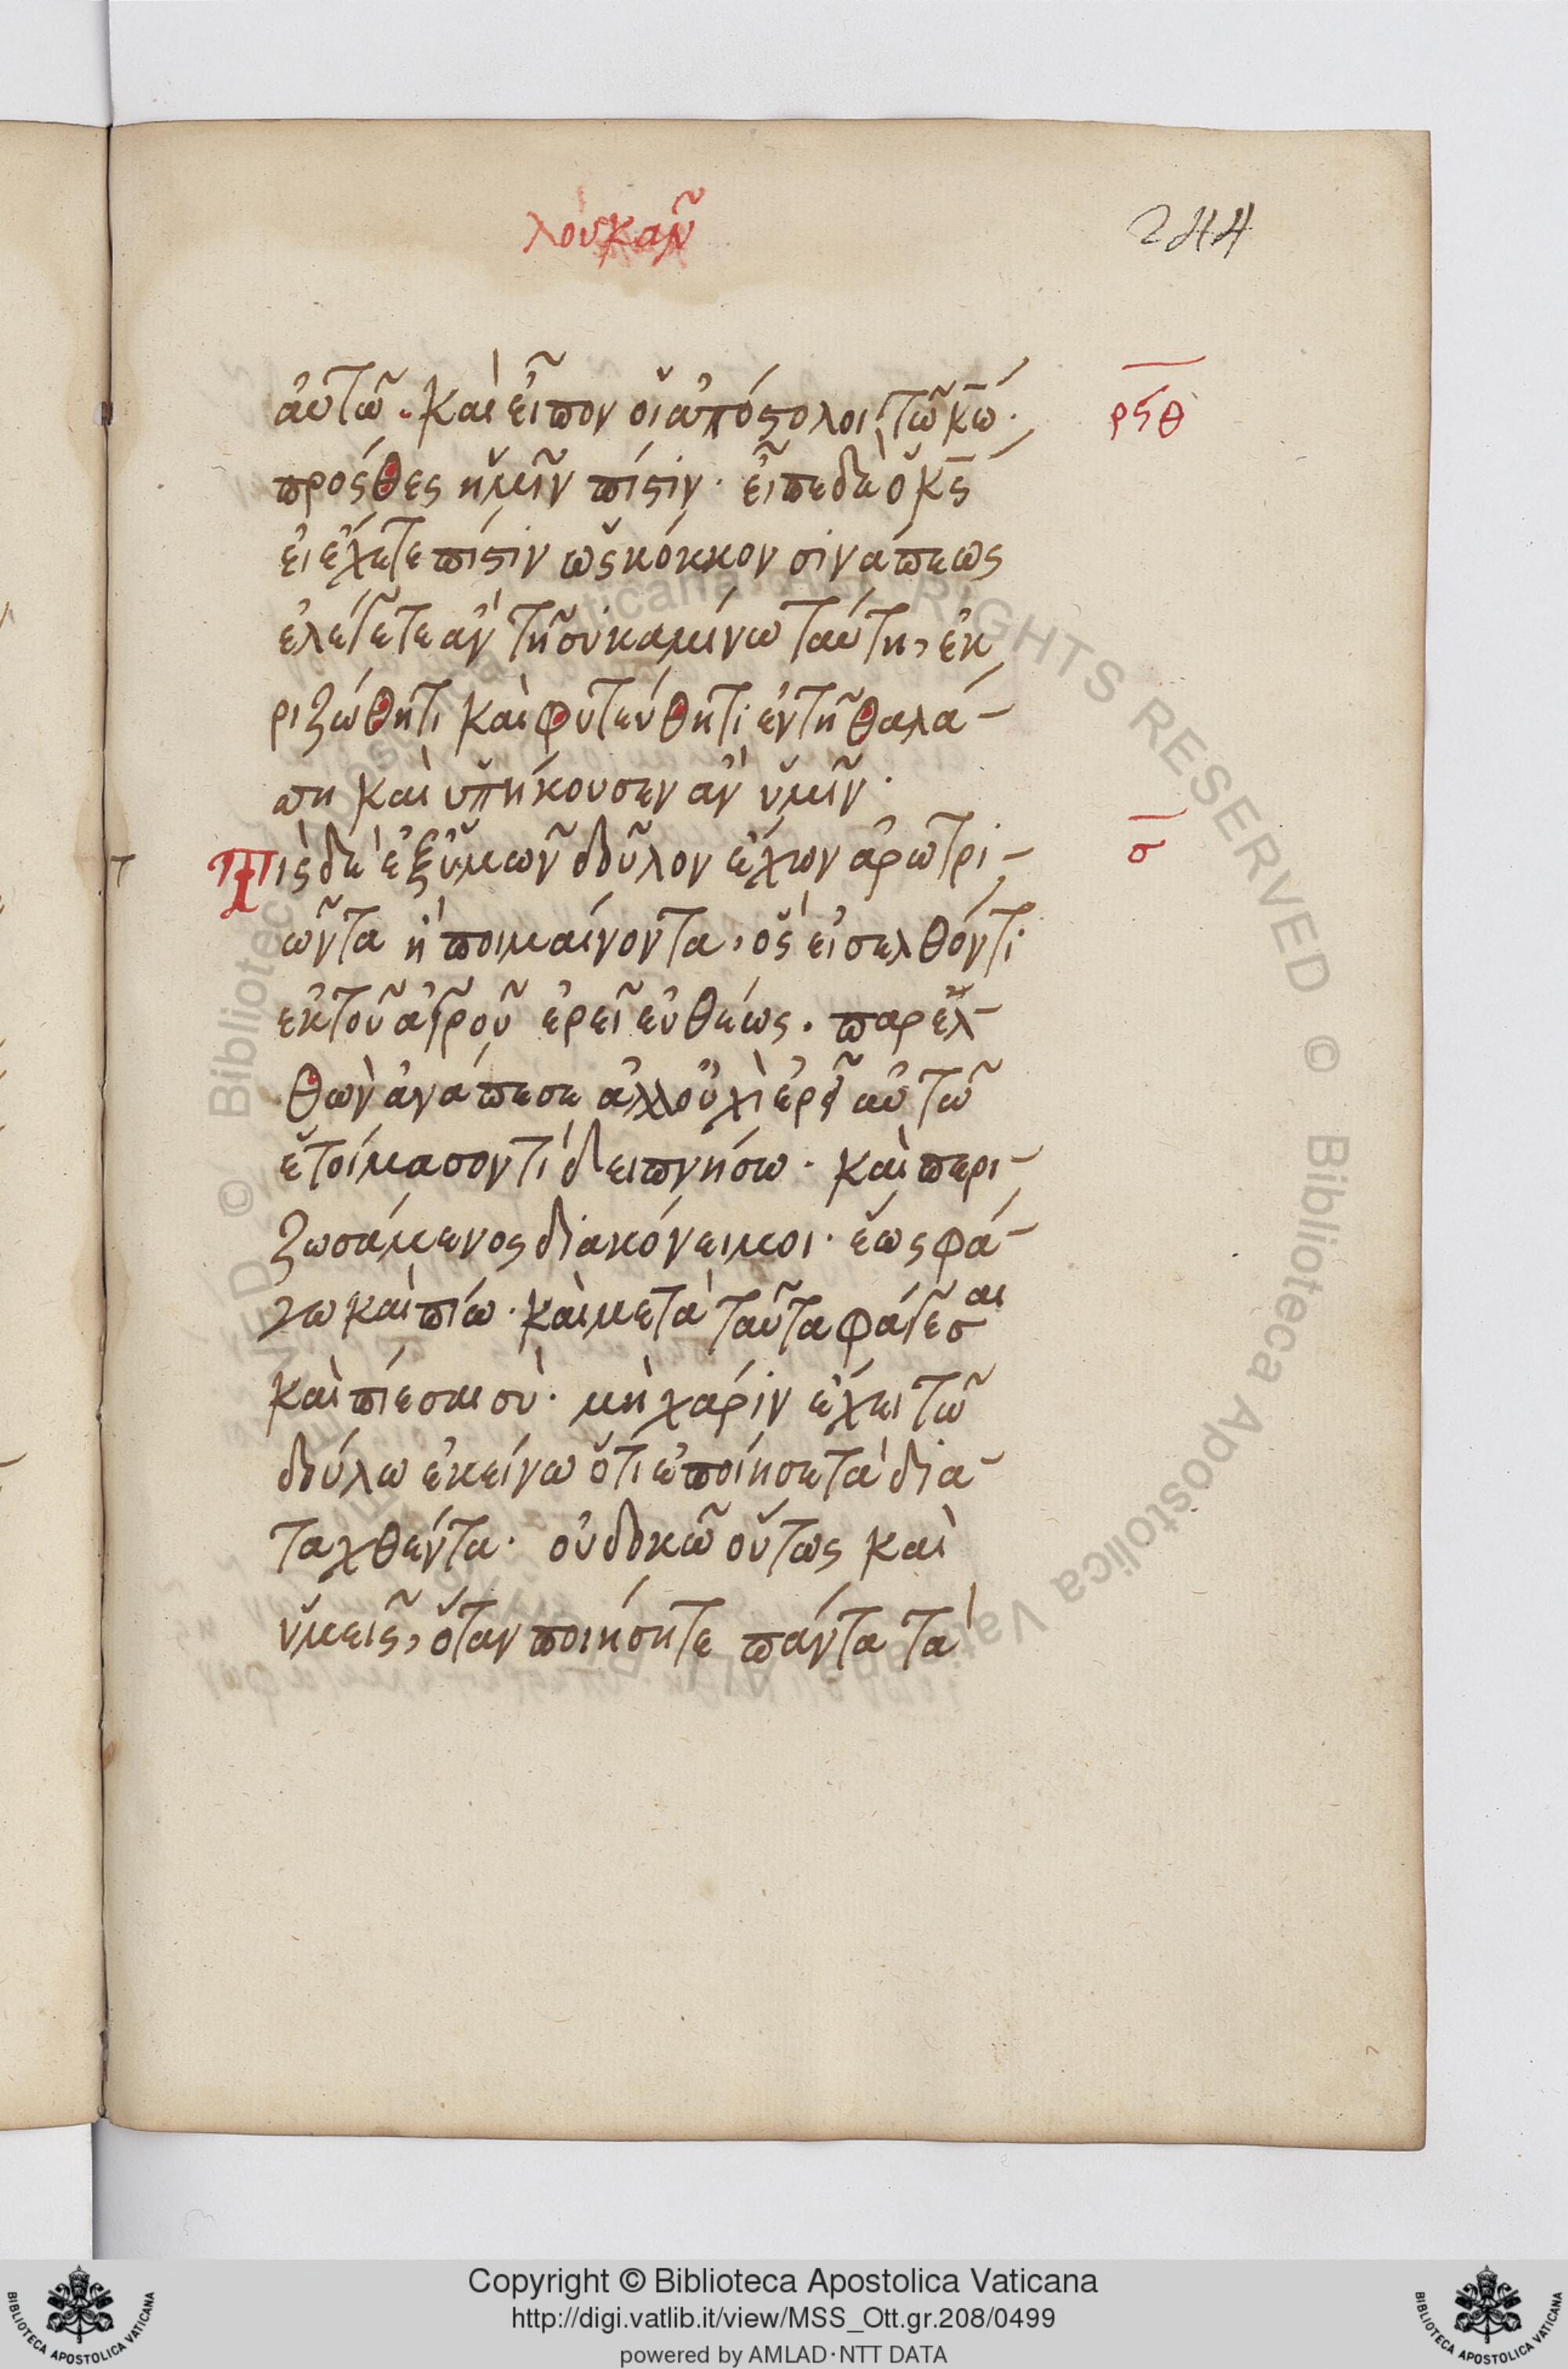 λουκᾶν
244
αὐτῶ. καὶ εἶπον οἱ ἀπόστολοι τῶ κ̅ω̅·
ρϟθ
πρόσθες ἡμῖν πίστιν· εἶπε δὲ ὁ κ̅ς̅
εἰ ἔχετε πίστιν ὡς κόκκον σινάπεως
ἐλέγετε ἂν τῆ συκαμίνω ταύτη, ἐκ
ριζώθητι καὶ φυτεύθητι ἐν τῆ θαλά-
σση καὶ ὑπήκουσεν ἂν ὑμῖν·
Τὶς δὲ ἐξ ὑμῶν δοῦλον ἔχων ἀρωτρι-
σ̅
ῶντα ἢ ποιμαίνοντα, ὃς εἰσελθόντι
ἐκ τοῦ ἀγροῦ ἐρεῖ εὐθέως. παρελ-
θὼν ἀνάπεσε ἀλλ οὐχὶ ἐρεῖ αὐτῶ
ἑτοίμασον τί δειπνήσω· καὶ περι-
ζωσάμενος διακόνει μοι· ἕως φά-
γω καὶ πίω· καὶ μετὰ ταῦτα φάγεσαι
καὶ πίεσαι σὺ· μὴ χάριν ἔχει τῶ
δούλω ἐκείνω ὅτι ἐποίησε τὰ δια-
ταχθέντα· οὐ δοκῶ οὕτως καὶ
ὑμεῖς, ὅταν ποιήσητε πάντα τὰ
Copyright © Biblioteca Apostolica Vaticana
http://digi.vatlib.it/view/MSS_Ott.gr.208/0499
powered by AMLAD·NTT DATA